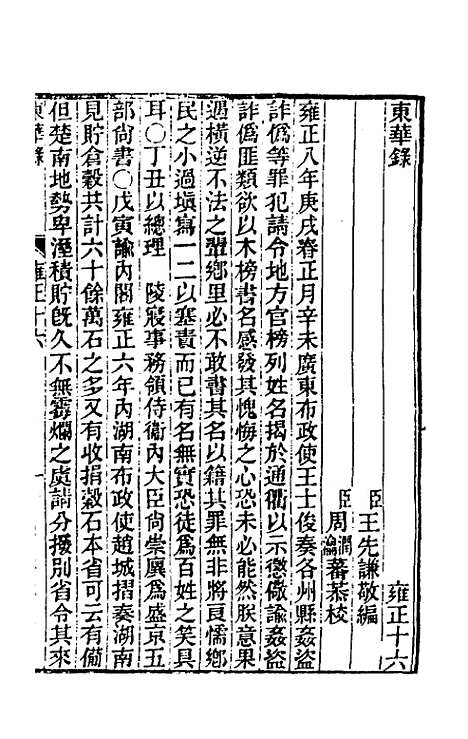 東華錄 雍正十六
臣王先謙敬編
臣周潤蕃周瀹蕃恭校
雍正八年庚戌春正月辛未廣東布政使王士俊奏各州縣姦盜
詐僞等罪犯請令地方官榜列姓名揭於通衢以示懲儆諭姦盜
詐僞匪類欲以木榜書名感發其愧悔之心恐未必能然朕意果
遇橫逆不法之輩鄉里必不敢書其名以籍其罪無非將良懦鄉
民之小過塡寫一二以塞責而已有名無實恐徒爲百姓之笑具
耳○丁丑以總理 陵寢事務領侍衞內大臣尙崇廙爲盛京五
部尙書○戊寅諭內閣雍正六年內湖南布政使趙城摺奏湖南
見貯倉穀共計六十餘萬石之多又有收捐穀石本省可云有備
但楚南地勢卑溼積貯旣久不無霉爛之虞請分撥別省令其來
東華錄 雍正十六 一